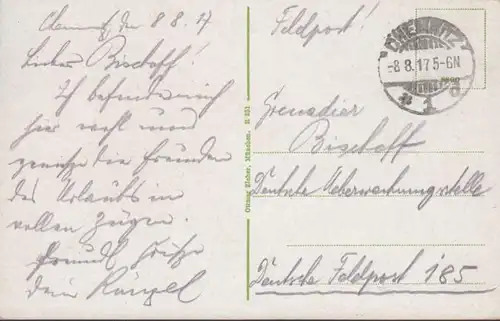 Chemnitz, den 8 8. 17
Lieber Bischoff!
Ich befinde mich
hier wohl und
genieße die Freuden
des Urlaubs in
vollen Zügen.
Freundl Grüße
Dein
Feldpost!
CHEMNITZ
-8.8.17.5-6N
* 1
Grenadier
Bischoff
Deutsche Ueberwachungsstelle
Deutsche Feldpost 185
Ottmar Zieher, München.